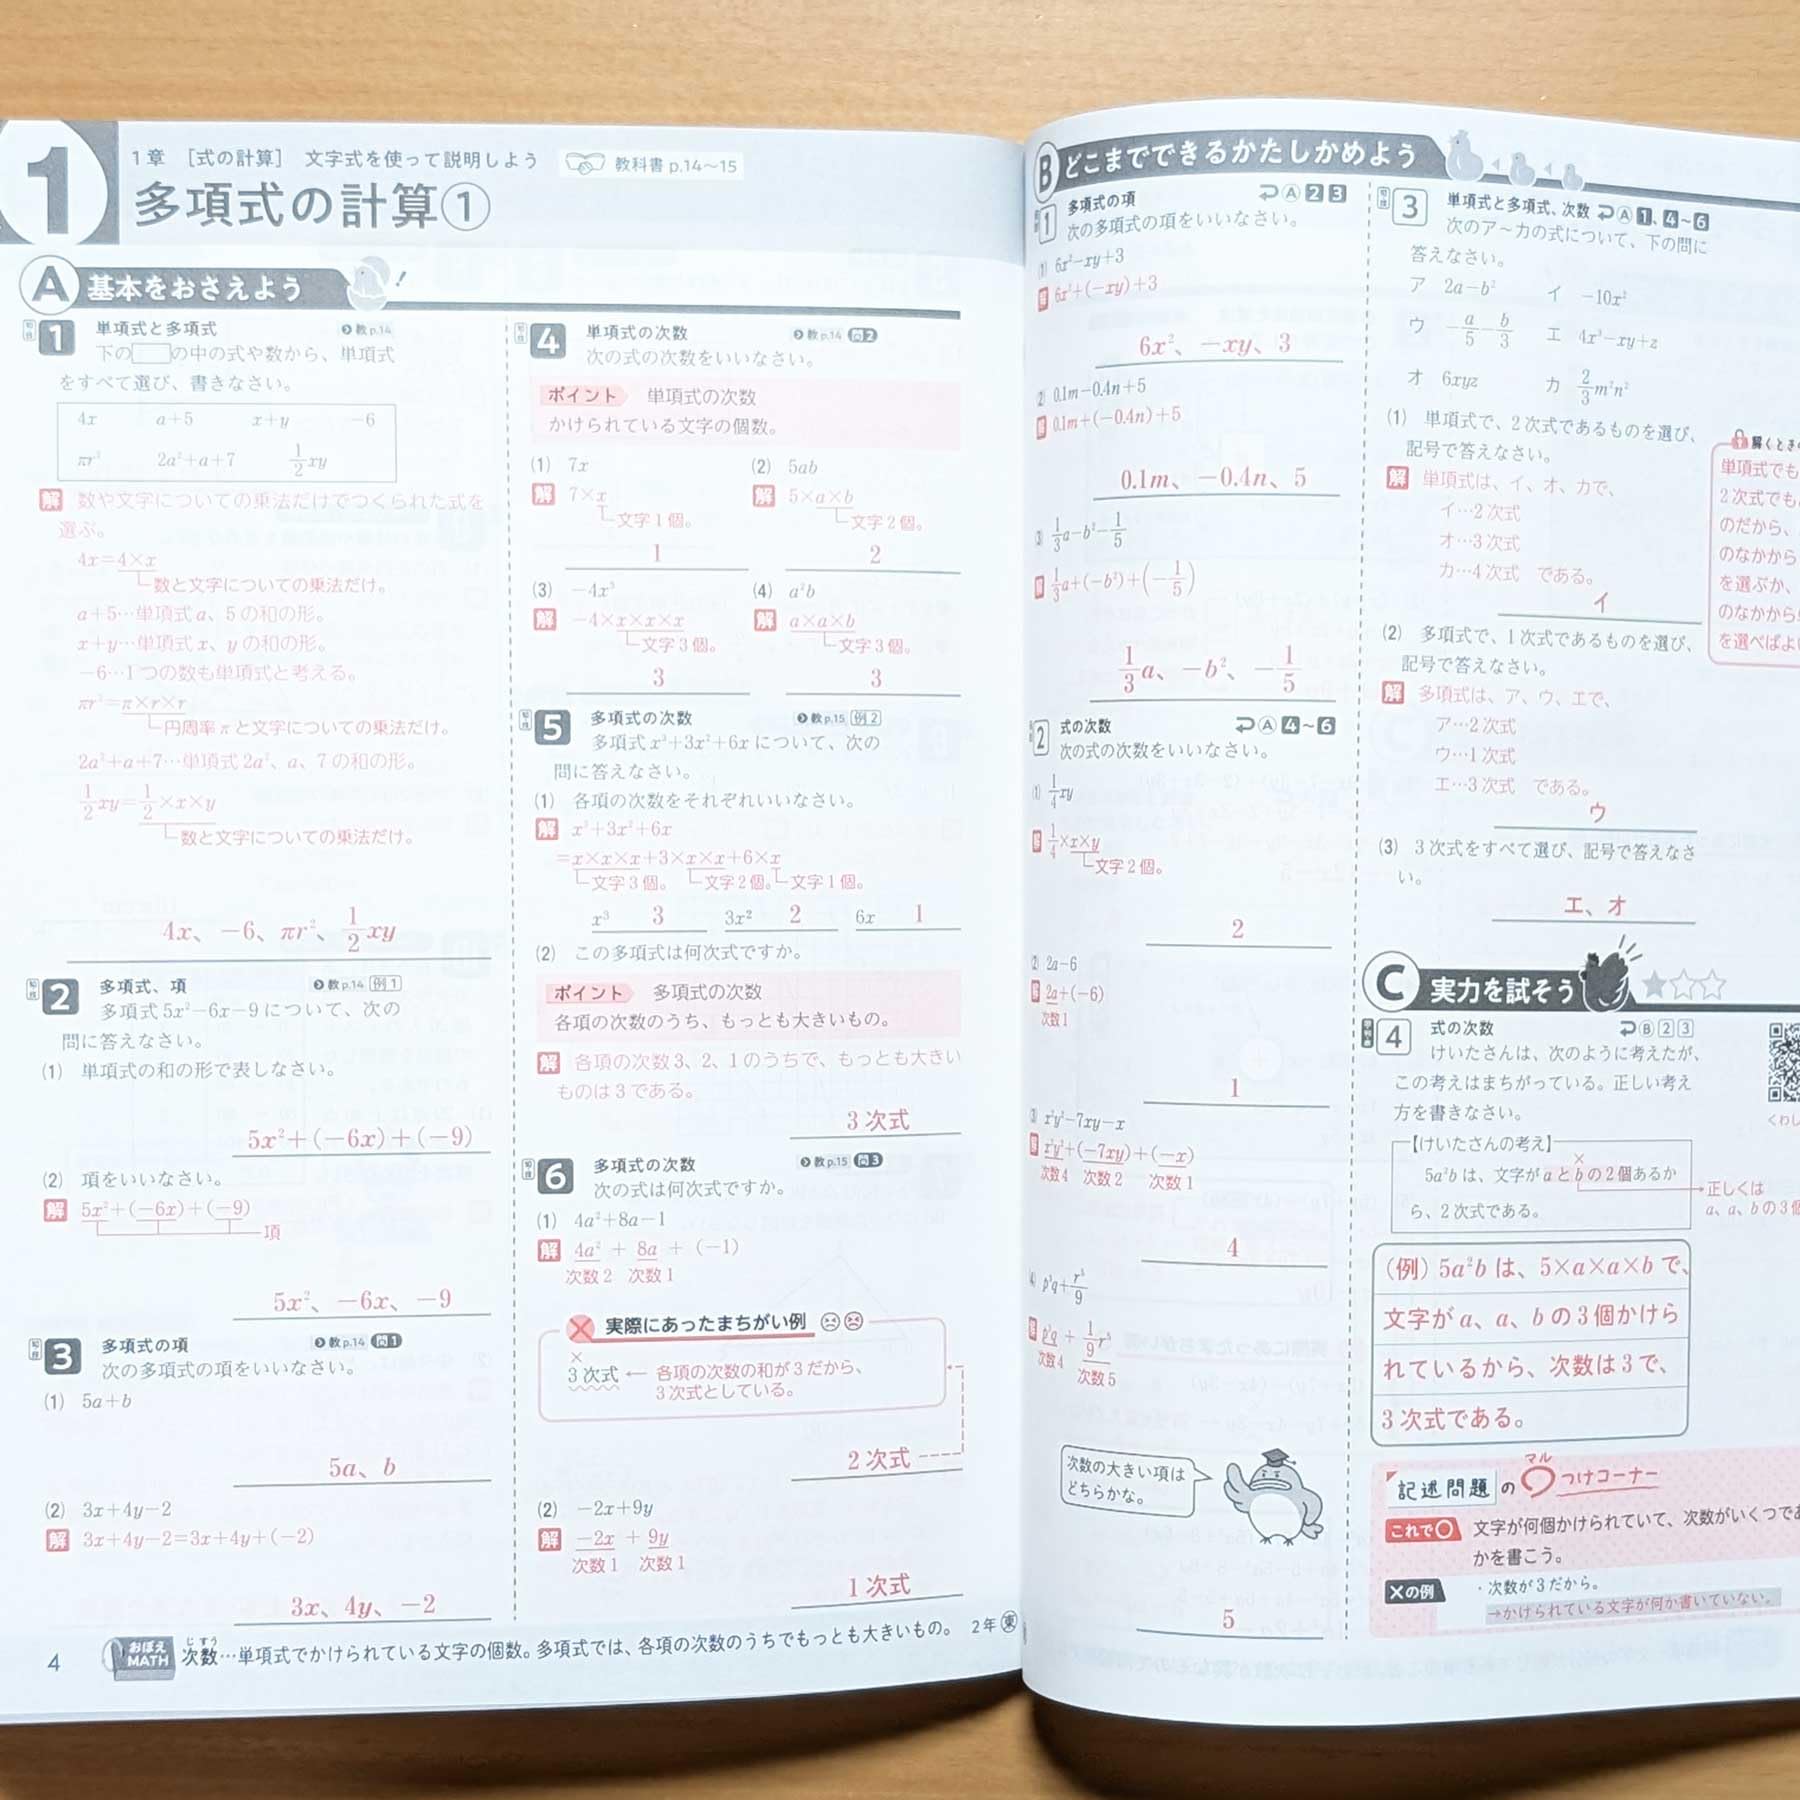 1
1章 [式の計算] 文字式を使って説明しよう 教科書 p.14～15
多項式の計算①
A 基本をおさえよう
1 単項式と多項式 教p.14
下の□の中の式や数から、単項式
をすべて選び、書きなさい。
4x a+5 x+y −6
πr² 2a²+a+7 1/2xy
解 数や文字についての乗法だけでつくられた式を
選ぶ。
4x=4×x
数と文字についての乗法だけ。
a+5…単項式a、5の和の形。
x+y…単項式x、yの和の形。
−6…1つの数も単項式と考える。
πr²=π×r×r
円周率πと文字についての乗法だけ。
2a²+a+7…単項式2a²、a、7の和の形。
1/2xy=1/2×x×y
数と文字についての乗法だけ。
4x、−6、πr²、1/2xy
2 多項式、項 教p.14 例1
多項式5x²−6x−9について、次の
問に答えなさい。
(1) 単項式の和の形で表しなさい。
5x²+(−6x)+(−9)
(2) 項をいいなさい。
解 5x²+(−6x)+(−9)
項
5x²、−6x、−9
3 多項式の項 教p.14 問1
次の多項式の項をいいなさい。
(1) 5a+b
5a、b
(2) 3x+4y−2
解 3x+4y−2=3x+4y+(−2)
3x、4y、−2
4 単項式の次数 教p.14 問2
次の式の次数をいいなさい。
ポイント 単項式の次数
かけられている文字の個数。
(1) 7x (2) 5ab
解 7×x 解 5×a×b
文字1個。 文字2個。
1 2
(3) −4x³ (4) a²b
解 −4×x×x×x 解 a×a×b
文字3個。 文字3個。
3 3
5 多項式の次数 教p.15 例2
多項式x³+3x²+6xについて、次の
問に答えなさい。
(1) 各項の次数をそれぞれいいなさい。
解 x³+3x²+6x
=x×x×x+3×x×x+6×x
文字3個。 文字2個。 文字1個。
x³ 3 3x² 2 6x 1
(2) この多項式は何次式ですか。
ポイント 多項式の次数
各項の次数のうち、もっとも大きいもの。
解 各項の次数3、2、1のうちで、もっとも大きい
ものは3である。
3次式
6 多項式の次数 教p.15 問3
次の式は何次式ですか。
(1) 4a²+8a−1
解 4a² + 8a + (−1)
次数2 次数1
実際にあったまちがい例
×
3次式 ← 各項の次数の和が3だから、
3次式としている。
2次式
(2) −2x+9y
解 −2x + 9y
次数1 次数1
1次式
4 おぼえMATH 次数…単項式でかけられている文字の個数。多項式では、各項の次数のうちでもっとも大きいもの。 2年 東
じすう
B どこまでできるかたしかめよう
1 多項式の項 A 2 3
次の多項式の項をいいなさい。
(1) 6x²−xy+3
解 6x²+(−xy)+3
6x²、−xy、3
(2) 0.1m−0.4n+5
解 0.1m+(−0.4n)+5
0.1m、−0.4n、5
(3) 1/3a−b²−1/5
解 1/3a+(−b²)+(−1/5)
1/3a、−b²、−1/5
2 式の次数 A 4～6
次の式の次数をいいなさい。
(1) 1/4xy
解 1/4×x×y
文字2個。
2
(2) 2a−6
解 2a+(−6)
次数1
1
(3) x²y²−7xy−x
解 x²y²+(−7xy)+(−x)
次数4 次数2 次数1
4
(4) p³q+r⁵/9
解 p³q + 1/9r⁵
次数4 次数5
次数の大きい項は
どちらかな。
5
3 単項式と多項式、次数 A 1、4～6
次のア～カの式について、下の問に
答えなさい。
ア 2a−b² イ −10x²
ウ −a/5−b/3 エ 4x³−xy+z
オ 6xyz カ 2/3m²n²
(1) 単項式で、2次式であるものを選び、
記号で答えなさい。
解 単項式は、イ、オ、カで、
イ…2次式
オ…3次式
カ…4次式 である。
イ
解くときの
単項式でも
2次式でも
のだから、
のなかから
を選ぶか、
のなかから
を選べばよい
(2) 多項式で、1次式であるものを選び、
記号で答えなさい。
解 多項式は、ア、ウ、エで、
ア…2次式
ウ…1次式
エ…3次式 である。
ウ
(3) 3次式をすべて選び、記号で答えなさ
い。
エ、オ
C 実力を試そう
4 式の次数 B 2 3
けいたさんは、次のように考えたが、
この考えはまちがっている。正しい考え
方を書きなさい。
くわし
【けいたさんの考え】
×
5a²bは、文字がaとbの2個あるか
ら、2次式である。
正しくは
a、a、bの3個
(例) 5a²bは、5×a×a×bで、
文字がa、a、bの3個かけら
れているから、次数は3で、
3次式である。
記述問題 の マル つけコーナー
これで○ 文字が何個かけられていて、次数がいくつであ
かを書こう。
×の例 ・次数が3だから。
→かけられている文字が何か書いていない。